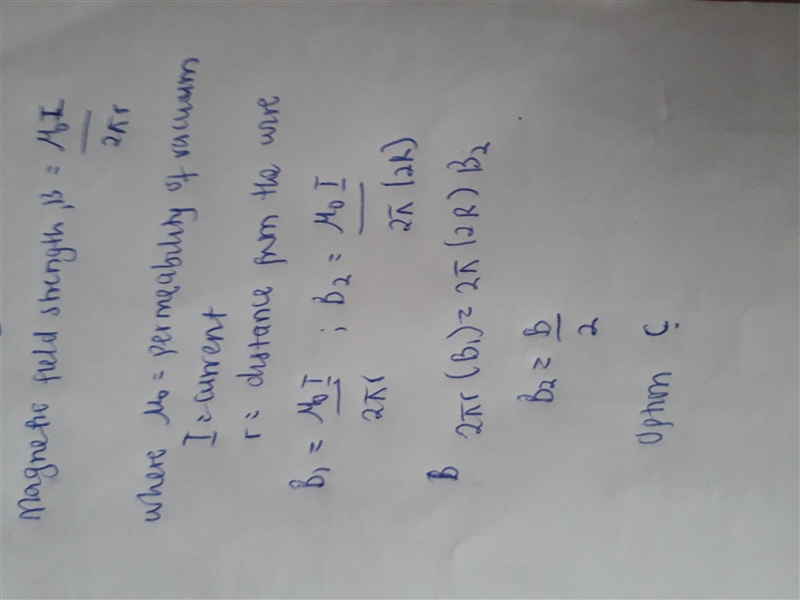 Magnetic field strength, B = μ₀I
2πr
where μ₀ = permeability of vacuum
I = current
r = distance from the wire
B₁ = μ₀I ; B₂ = μ₀I
2πr 2π(2R)
B 2πr (B₁) = 2π(2R) B₂
B₂ = B
2
Option C